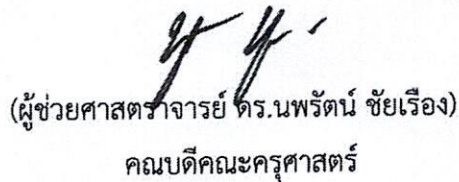 (ผู้ช่วยศาสตราจารย์ ดร.นพรัตน์ ชัยเรือง)
คณบดีคณะครุศาสตร์